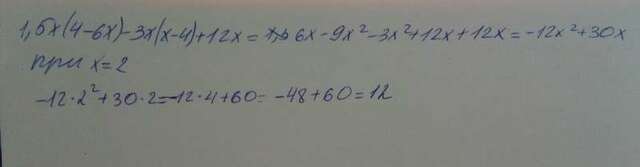 1,5x(4-6x)-3x(x-4)+12x= 6x-9x²-3x²+12x+12x=-12x²+30x
при x=2
-12·2²+30·2=-12·4+60=-48+60=12